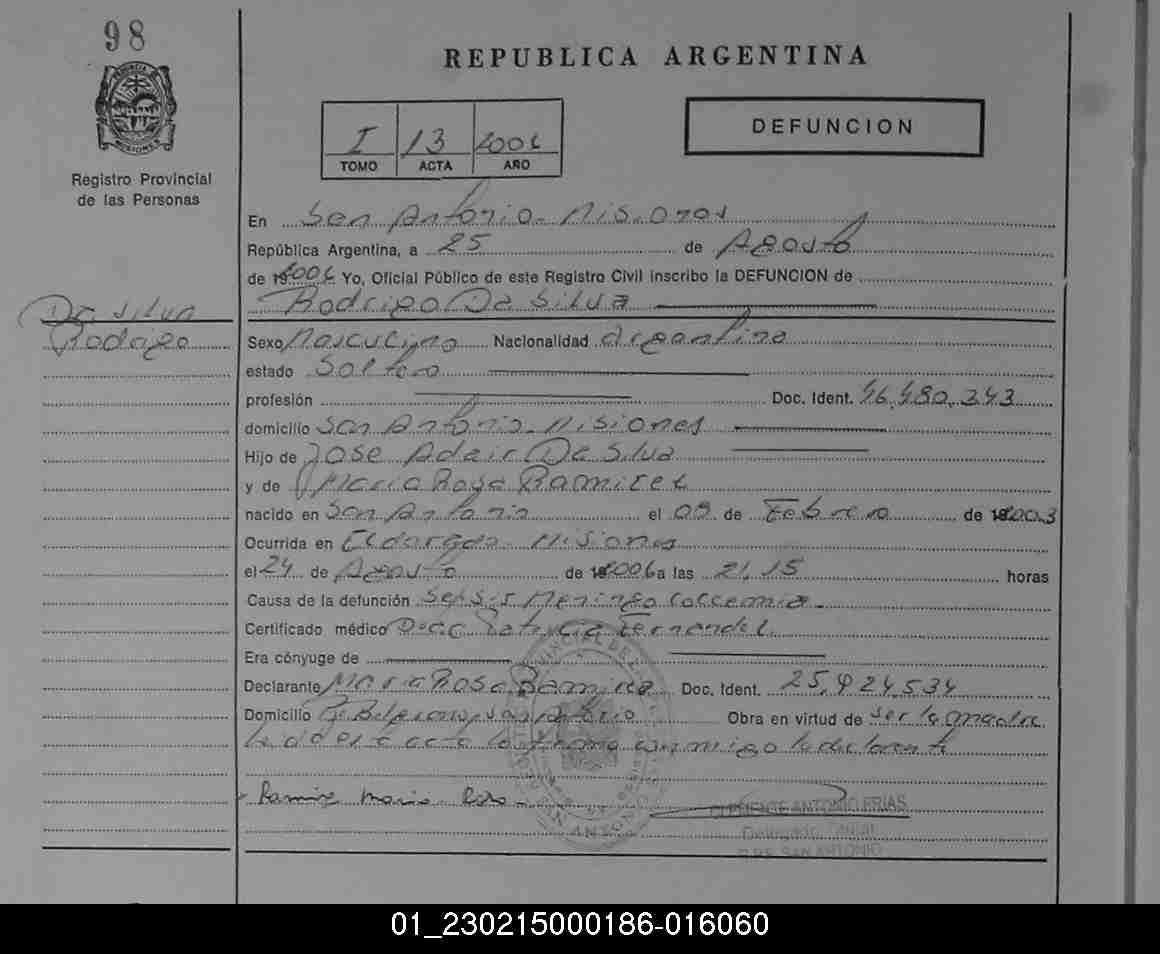 98
REPUBLICA ARGENTINA
I 13 2006
TOMO ACTA AÑO
DEFUNCION
PROVINCIA DE MISIONES
Registro Provincial
de las Personas
En San Antonio - Misiones
República Argentina, a 25 de Agosto
de 2006 Yo, Oficial Público de este Registro Civil inscribo la DEFUNCION de
Rodrigo Da Silva
Da Silva
Rodrigo
Sexo Masculino Nacionalidad Argentino
estado Soltero
profesión Doc. Ident. 46.480.343
domicilio San Antonio - Misiones
Hijo de Jose Adair Da Silva
y de Maria Rosa Ramirez
nacido en San Antonio el 09 de Febrero de 2003
Ocurrida en Eldorado - Misiones
el 24 de Agosto de 2006 a las 21,15 horas
Causa de la defunción Sepsis Meningococcemia.
Certificado médico Doc. Patricia Fernandez.
Era cónyuge de
Declarante Maria Rosa Ramirez Doc. Ident. 25.924.534
Domicilio Belgrano, San Antonio Obra en virtud de ser la madre
leida esta acta la firma conmigo la declarante
Ramirez Maria Rosa
CLEMENTE ANTONIO FRIAS
Delegado Titular
SAN ANTONIO
01_230215000186-016060